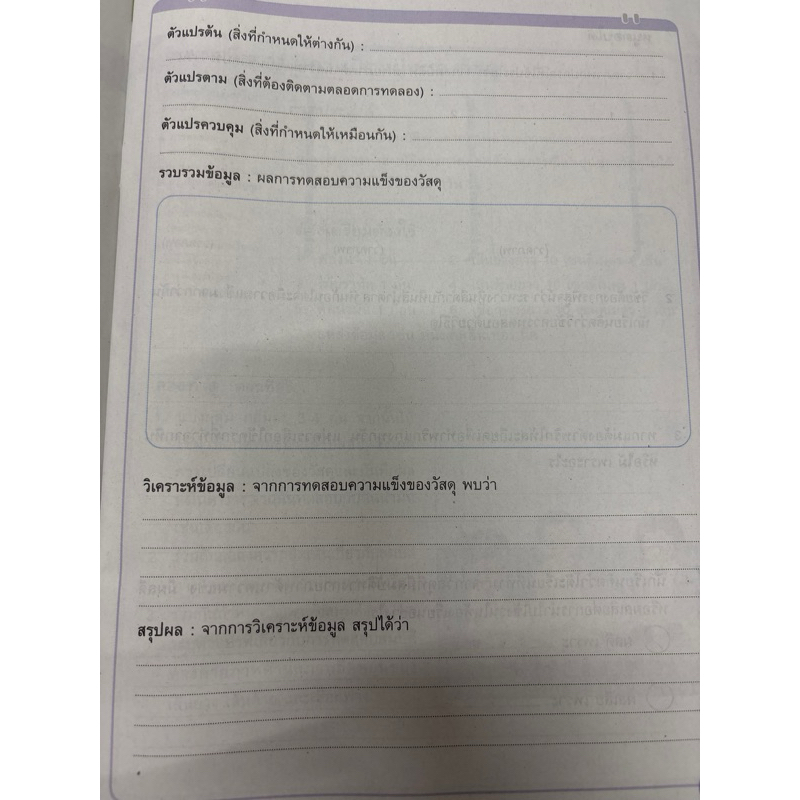 ตัวแปรต้น (สิ่งที่กำหนดให้ต่างกัน) :
ตัวแปรตาม (สิ่งที่ต้องติดตามตลอดการทดลอง) :
ตัวแปรควบคุม (สิ่งที่กำหนดให้เหมือนกัน) :
รวบรวมข้อมูล : ผลการทดสอบความแข็งของวัสดุ
วิเคราะห์ข้อมูล : จากการทดสอบความแข็งของวัสดุ พบว่า
สรุปผล : จากการวิเคราะห์ข้อมูล สรุปได้ว่า